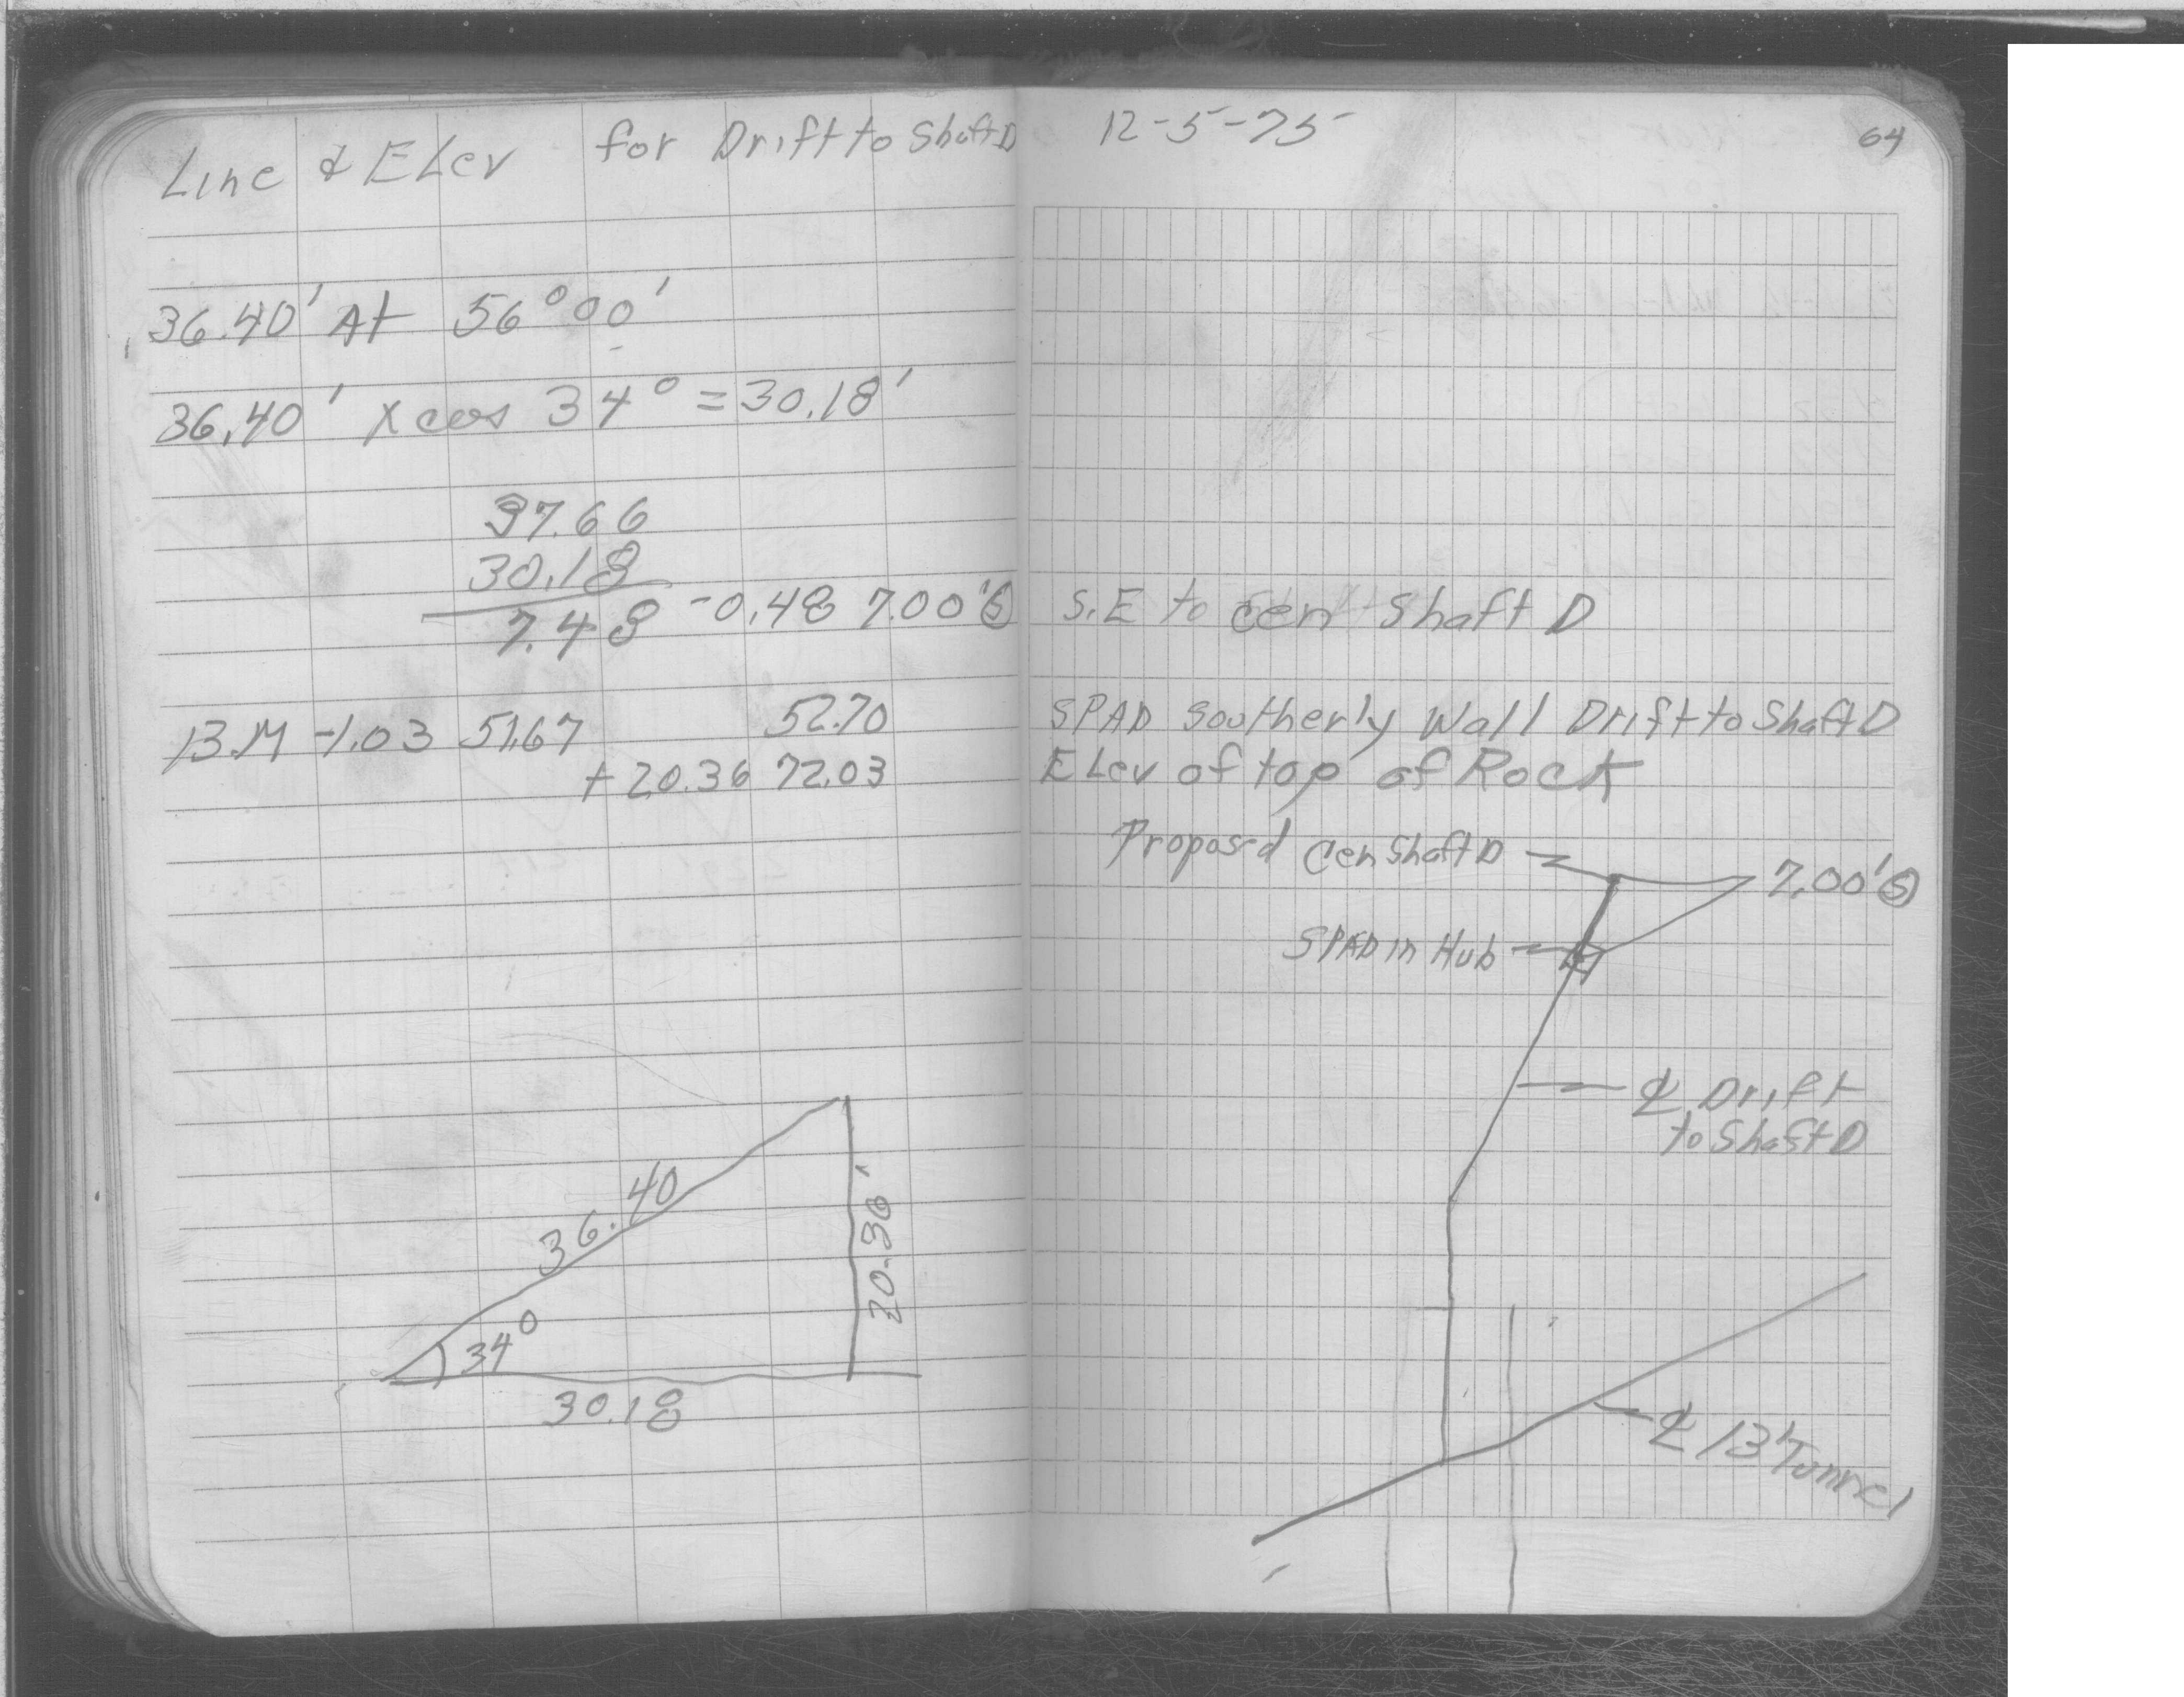 Line & ELev for Drift to Shaft D
12-5-75
64
36.40' At 56°00'
36.40' x cos 34° = 30.18'
37.66
30.18
7.48 -0.48 7.00' Ⓢ S.E to cen Shaft D
B.M -1.03 51.67 52.70 SPAD Southerly Wall Drift to Shaft D
+20.36 72.03 ELev of top of Rock
Proposed Cen Shaft D
7.00' Ⓢ
SPAD in Hub
℄ Drift
to Shaft D
36.40
20.36'
34°
30.18
℄ 13' Tunnel